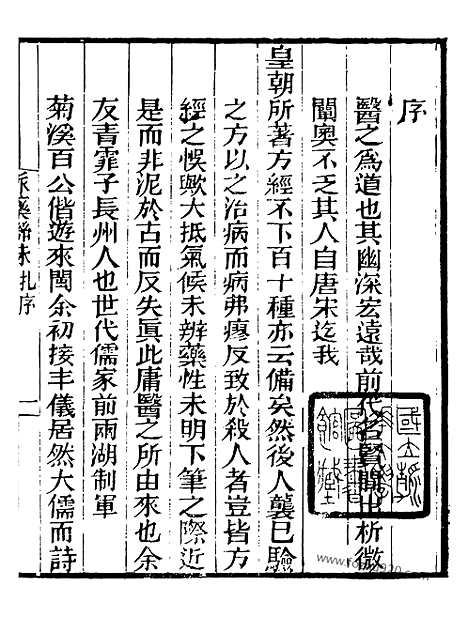 序
醫之為道也其幽深宏遠哉前代名醫輩出析微
闡奧不乏其人自唐宋迄我
皇朝所著方經不下百十種亦云備矣然後人襲已驗
之方以之治病而病弗瘳反致於殺人者豈皆方
經之悞歟大抵氣候未辨藥性未明下筆之際近
是而非泥於古而反失眞此庸醫之所由來也余
友青霏子長州人也世代儒家前兩湖制軍
菊溪百公偕遊來閩余初接丰儀居然大儒而詩
脈藥聯珠 序
一